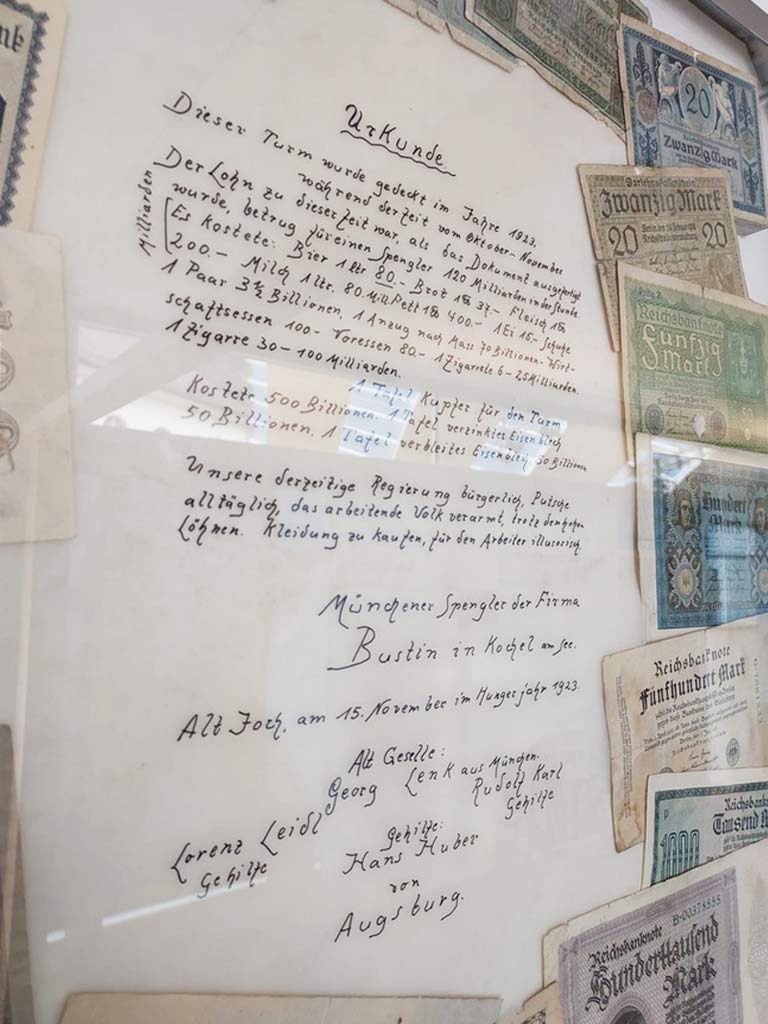 Urkunde
Dieser Turm wurde gedeckt im Jahre 1923.
während der Zeit vom Oktober-November
Der Lohn zu dieser Zeit war, als das Dokument ausgefertigt
wurde, betrug für einen Spengler 120 Milliarden in der Stunde
Milliarden
Es kostete: Bier 1 ltr 80.- Brot 1 ℔ 37.- Fleisch 1 ℔
200.- Milch 1 ltr. 80. Mill. Fett 1 ℔ 400.- 1 Ei 15.- Schuhe
1 Paar 3½ Billionen, 1 Anzug nach Mass 70 Billionen- Wirt-
schaftsessen 100- Voressen 80.- 1 Zigarrete 6-25 Milliarden.
1 Zigarre 30-100 Milliarden.
1 Tafel Kupfer für den Turm
Kostete 500 Billionen. 1 Tafel verzinktes Eisenblech
50 Billionen. 1 Tafel verbleites Eisenblech 50 Billionen
Unsere derzeitige Regierung bürgerlich, Putsche
alltäglich, das arbeitende Volk verarmt, trotz den hohen
Löhnen. Kleidung zu kaufen, für den Arbeiter illusorisch.
Münchener Spengler der Firma
Bustin in Kochel am See.
Alt Joch, am 15. November im Hungerjahr 1923.
Alt Geselle:
Georg Lenk aus München.
Rudolf Karl
Gehilfe
Lorenz Leidl
Gehilfe
Gehilfe:
Hans Huber
von
Augsburg.
nk
20
Zwanzig Mark
Darlehnskassenschein
Zwanzig Mark
20 20
Reichsbanknote
Fünfzig
Mark
50
Hundert
Mark
Reichsbanknote
Fünfhundert Mark
Reichsbank
1000 Tausend
B·00378555
Reichsbanknote
Hunderttausend
Mark